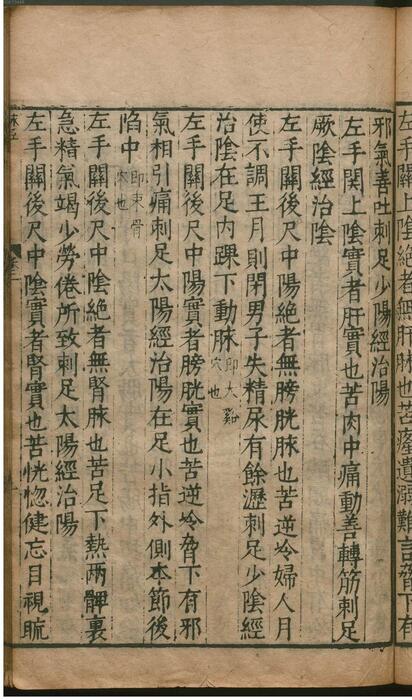 左手關上陰絕者無肝脉也苦癃遺溺難言脅下有
邪氣善吐刺足少陽經治陽
左手関上陰實者肝實也苦肉中痛動善轉筋刺足
厥陰經治陰
左手關後尺中陽絕者無膀胱脉也苦逆冷婦人月
使不調王月則閉男子失精尿有餘瀝刺足少陰經
治陰在足内踝下動脉即大谿穴也
左手關後尺中陽實者膀胱實也苦逆冷脅下有邪
氣相引痛刺足太陽經治陽在足小指外側本節後
陷中即束骨穴也
左手關後尺中陰絕者無腎脉也苦足下熱兩髀裏
急精氣竭少勞倦所致刺足太陽經治陽
左手關後尺中陰實者腎實也苦恍惚健忘目視䀮